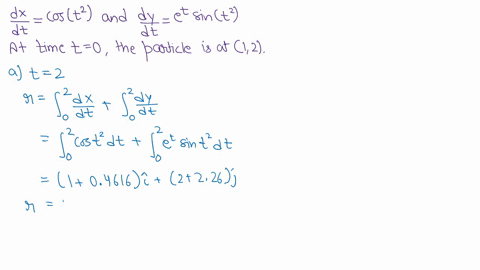 dx/dt = cos(t²) and dy/dt = eᵗ sin(t²)
At time t=0, the particle is at (1,2).
a) t=2
r = ∫₀² dx/dt + ∫₀² dy/dt
= ∫₀² cost² dt + ∫₀² eᵗ sint² dt
= (1+0.4616)î + (2+2.26)ĵ
r =